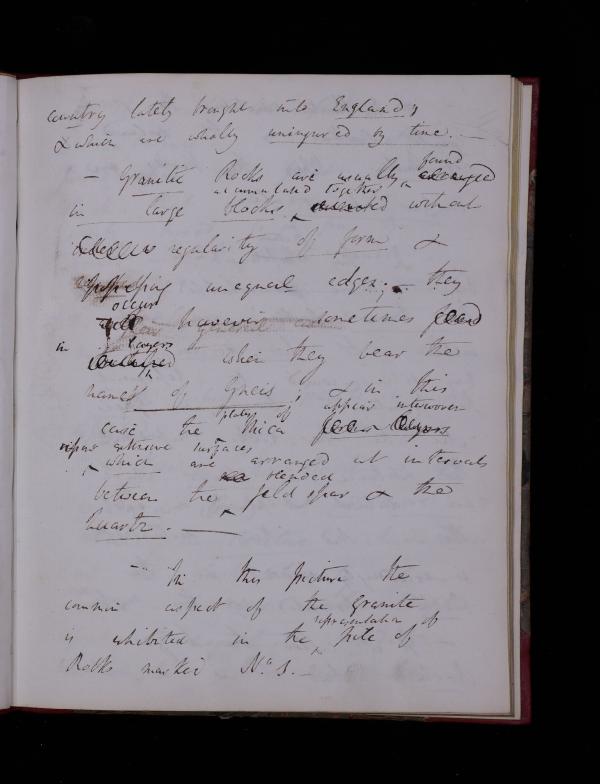 country lately brought into England;
& which are wholly uninjured by time. —
— Granitic Rocks are usually found arranged
accumulated together
in large blocks, without
regularity of form &
possessing unequal edges; — they
occur
however sometimes
in layers when they bear the
name of Gneis, & in this
case the plates of Mica appear interwoven
layers
surfaces
which are arranged at intervals
blended
between the feldspar & the
Quartz. —
— In this picture the
common aspect of the Granite
is exhibited in the representation of
pile of
Rocks marked No. 1. —